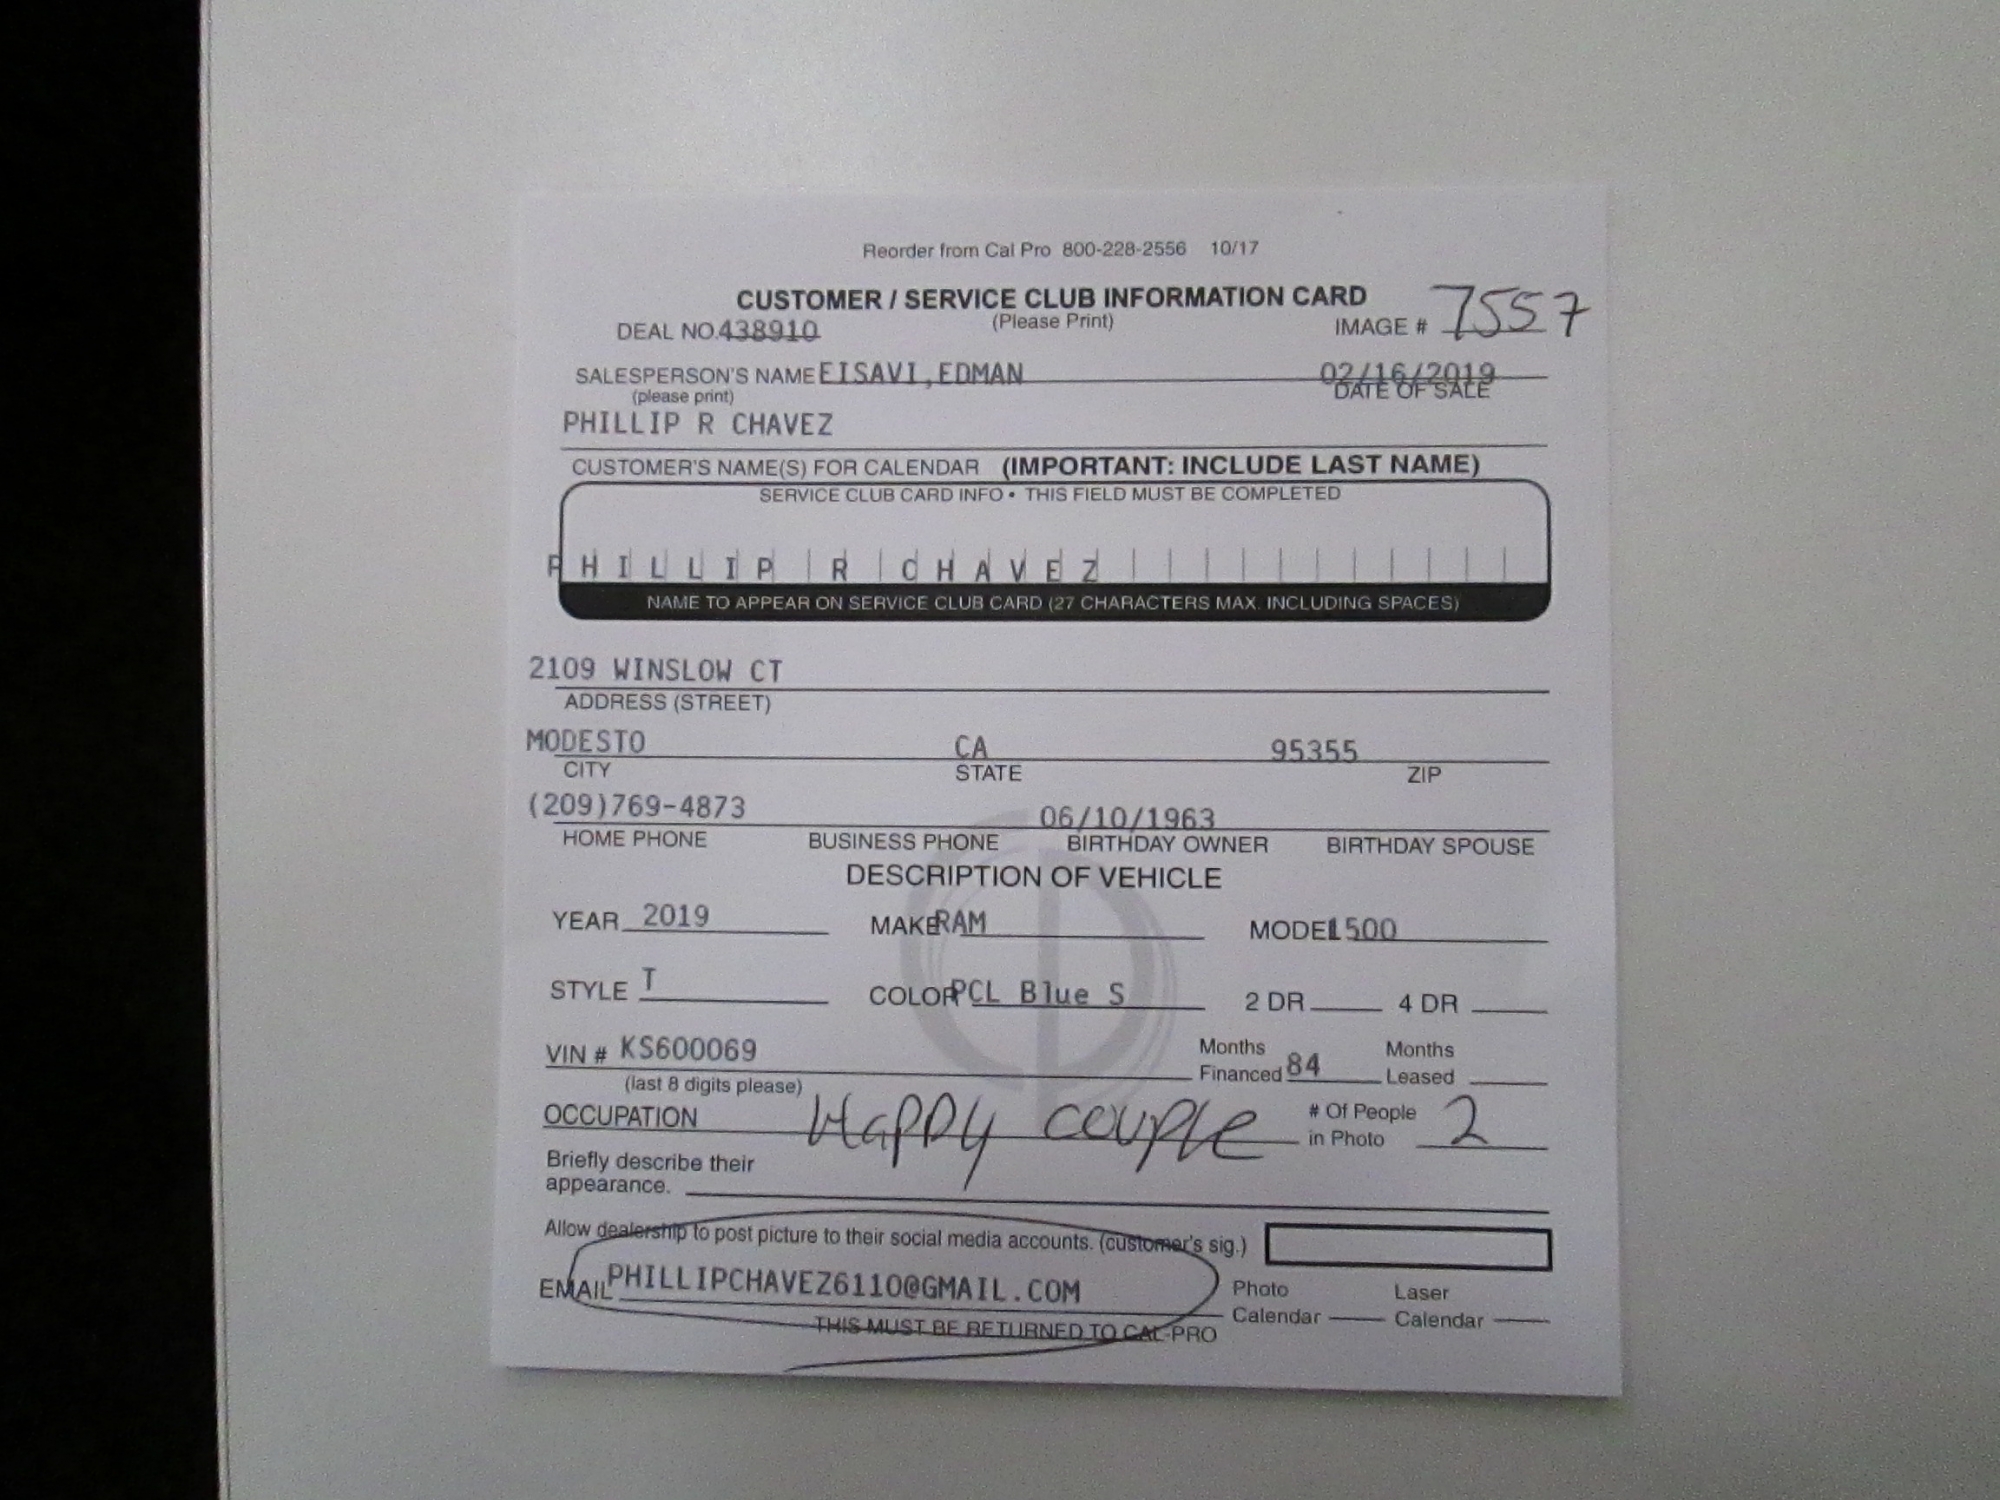 Reorder from Cal Pro 800-228-2556 10/17
CUSTOMER / SERVICE CLUB INFORMATION CARD
(Please Print)
DEAL NO. 438910 IMAGE # 7557
SALESPERSON'S NAME EISAVI,EDMAN 02/16/2019
(please print) DATE OF SALE
PHILLIP R CHAVEZ
CUSTOMER'S NAME(S) FOR CALENDAR (IMPORTANT: INCLUDE LAST NAME)
SERVICE CLUB CARD INFO • THIS FIELD MUST BE COMPLETED
PHILLIP R CHAVEZ
NAME TO APPEAR ON SERVICE CLUB CARD (27 CHARACTERS MAX. INCLUDING SPACES)
2109 WINSLOW CT
ADDRESS (STREET)
MODESTO CA 95355
CITY STATE ZIP
(209)769-4873 06/10/1963
HOME PHONE BUSINESS PHONE BIRTHDAY OWNER BIRTHDAY SPOUSE
DESCRIPTION OF VEHICLE
YEAR 2019 MAKE RAM MODEL 1500
STYLE T COLOR PCL Blue S 2 DR 4 DR
VIN # KS600069 Months Financed 84 Months Leased
(last 8 digits please)
OCCUPATION Happy couple # Of People in Photo 2
Briefly describe their
appearance.
Allow dealership to post picture to their social media accounts. (customer's sig.)
EMAIL PHILLIPCHAVEZ6110@GMAIL.COM Photo Calendar Laser Calendar
THIS MUST BE RETURNED TO CAL-PRO